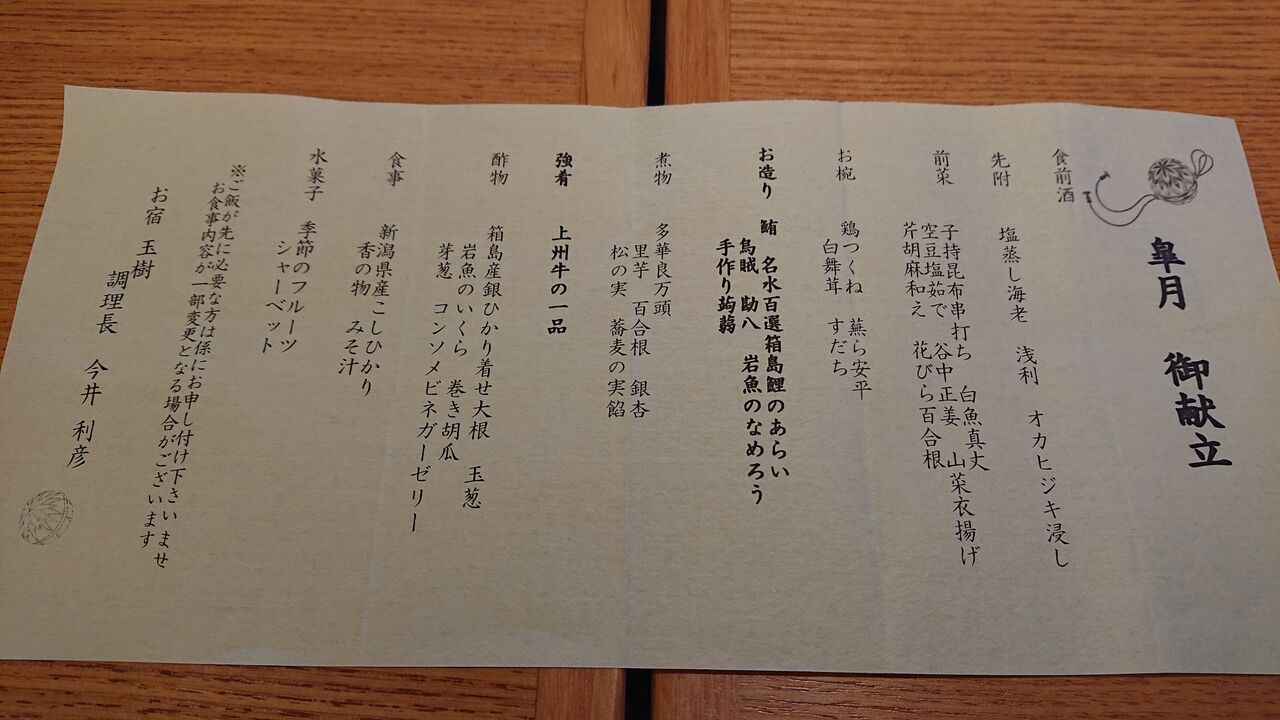 皐月 御献立
食前酒
先附 塩蒸し海老 浅利 オカヒジキ浸し
前菜 子持昆布串打ち 白魚真丈
空豆塩茹で 谷中正姜 山菜衣揚げ
芹胡麻和え 花びら百合根
お椀 鶏つくね 蕪ら安平
白舞茸 すだち
お造り 鮪 名水百選箱島鯉のあらい
烏賊 勘八 岩魚のなめろう
手作り蒟蒻
煮物 多華良万頭
里芋 百合根 銀杏
松の実 蕎麦の実餡
強肴 上州牛の一品
酢物 箱島産銀ひかり着せ大根 玉葱
岩魚のいくら 巻き胡瓜
芽葱 コンソメビネガーゼリー
食事 新潟県産こしひかり
香の物 みそ汁
水菓子 季節のフルーツ
シャーベット
※ご飯が先に必要な方は係にお申し付け下さいませ
お食事内容が一部変更となる場合がございます
お宿 玉樹
調理長 今井 利彦